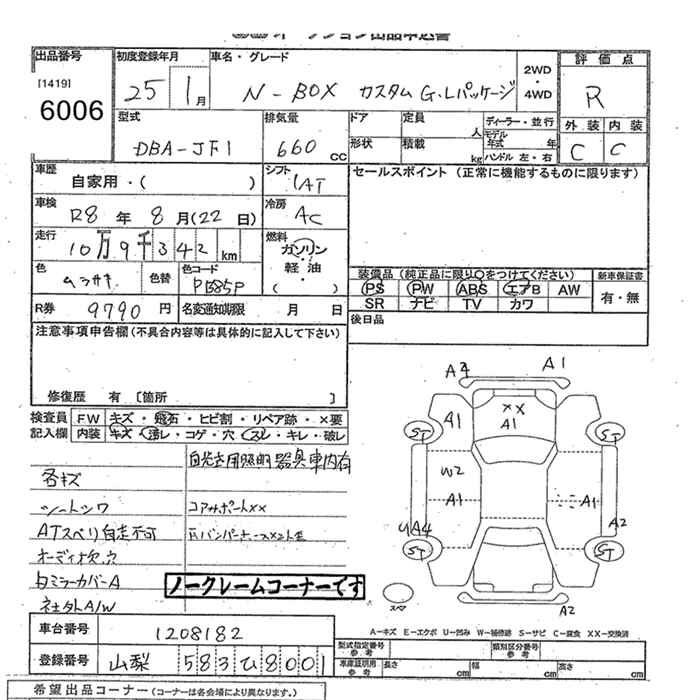 出品番号
[1419]
6006
初度登録年月
25 1月
車名・グレード
N-BOX カスタム G.Lパッケージ
2WD
・
4WD
評価点
R
外装 内装
C C
型式
DBA-JF1
排気量
660 CC
ドア 定員 人
形状 積載 kg
ディーラー・並行
モデル年式 年
ハンドル 左・右
車歴
自家用・( )
シフト
IAT
セールスポイント (正常に機能するものに限ります)
車検
R8年8月(22日)
冷房
AC
走行
10万9千342km
燃料
ガソリン
・
軽油
( )
色
ムラサキ
色替
色コード
PB85P
装備品 (純正品に限り○をつけてください) 新車保証書
PS PW ABS エアB AW
SR ナビ TV カワ
有・無
R券 9790円
名変通知期限 月 日
後日品
注意事項申告欄 (不具合内容等は具体的に記入して下さい)
修復歴 有 〔箇所 〕
検査員 FW キズ・飛石・ヒビ割・リペア跡・×要
記入欄 内装 キズ・汚レ・コゲ・穴・スレ・キレ・破レ
各キズ
シートシワ
コアサポートXX
ATスベリ自走不可
オーディオ欠品
ミラーカバーA
社外A/W
ノークレームコーナーです
車台番号 1208182
登録番号 山梨 583 ひ 8001
希望出品コーナー (コーナーは各会場により異なります。)
A2 A1
A1 XX
A1
ST ST
W2
A1 A1
UA4 A2
ST ST
スペア A2
A-キズ E-エクボ U-凹み W-補修跡 S-サビ C-腐食 XX-交換済
型式指定番号 参考 類別区分番号 参考
車庫証明用 参考 長さ cm 幅 cm 高さ cm